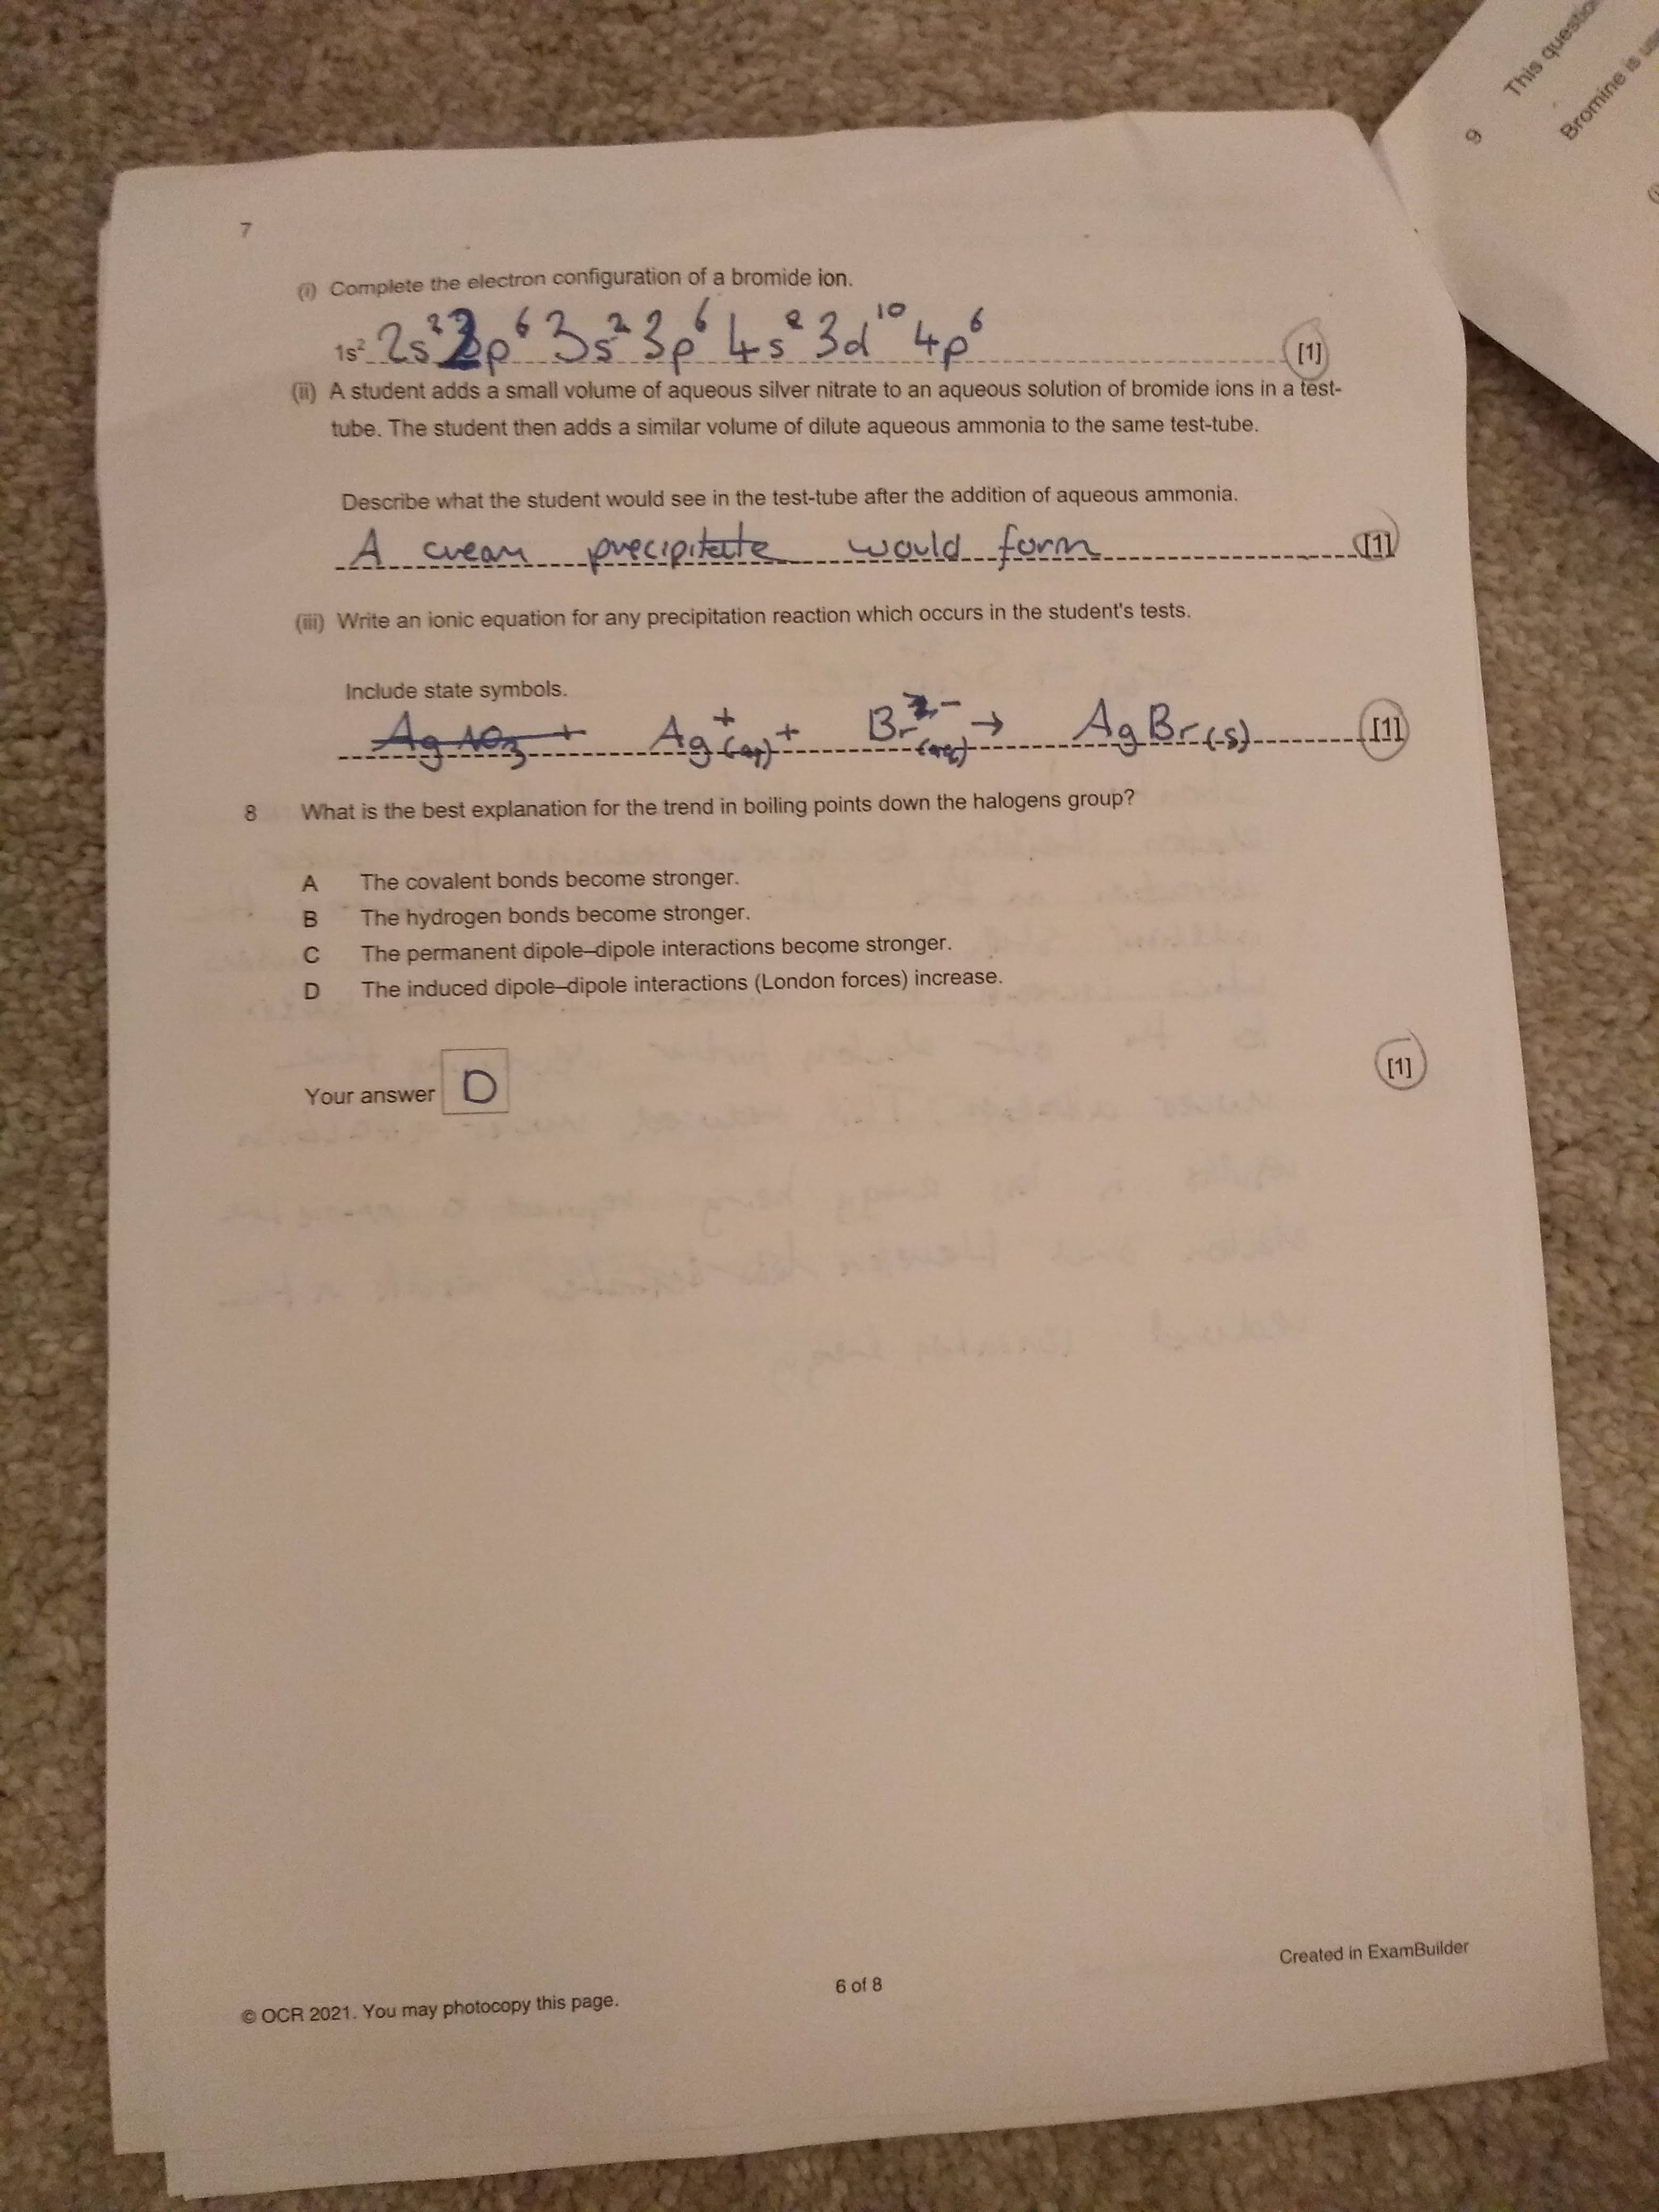 9 This questio
Bromine is
7
(i) Complete the electron configuration of a bromide ion.
1s² 2s² 2p⁶ 3s² 3p⁶ 4s² 3d¹⁰ 4p⁶ [1]
(ii) A student adds a small volume of aqueous silver nitrate to an aqueous solution of bromide ions in a test-
tube. The student then adds a similar volume of dilute aqueous ammonia to the same test-tube.
Describe what the student would see in the test-tube after the addition of aqueous ammonia.
A cream precipitate would form [1]
(iii) Write an ionic equation for any precipitation reaction which occurs in the student's tests.
Include state symbols.
AgNO₃ + Ag⁺(aq) + Br⁻(aq) → AgBr(s) [1]
8 What is the best explanation for the trend in boiling points down the halogens group?
A The covalent bonds become stronger.
B The hydrogen bonds become stronger.
C The permanent dipole–dipole interactions become stronger.
D The induced dipole–dipole interactions (London forces) increase.
Your answer D [1]
Created in ExamBuilder
6 of 8
© OCR 2021. You may photocopy this page.